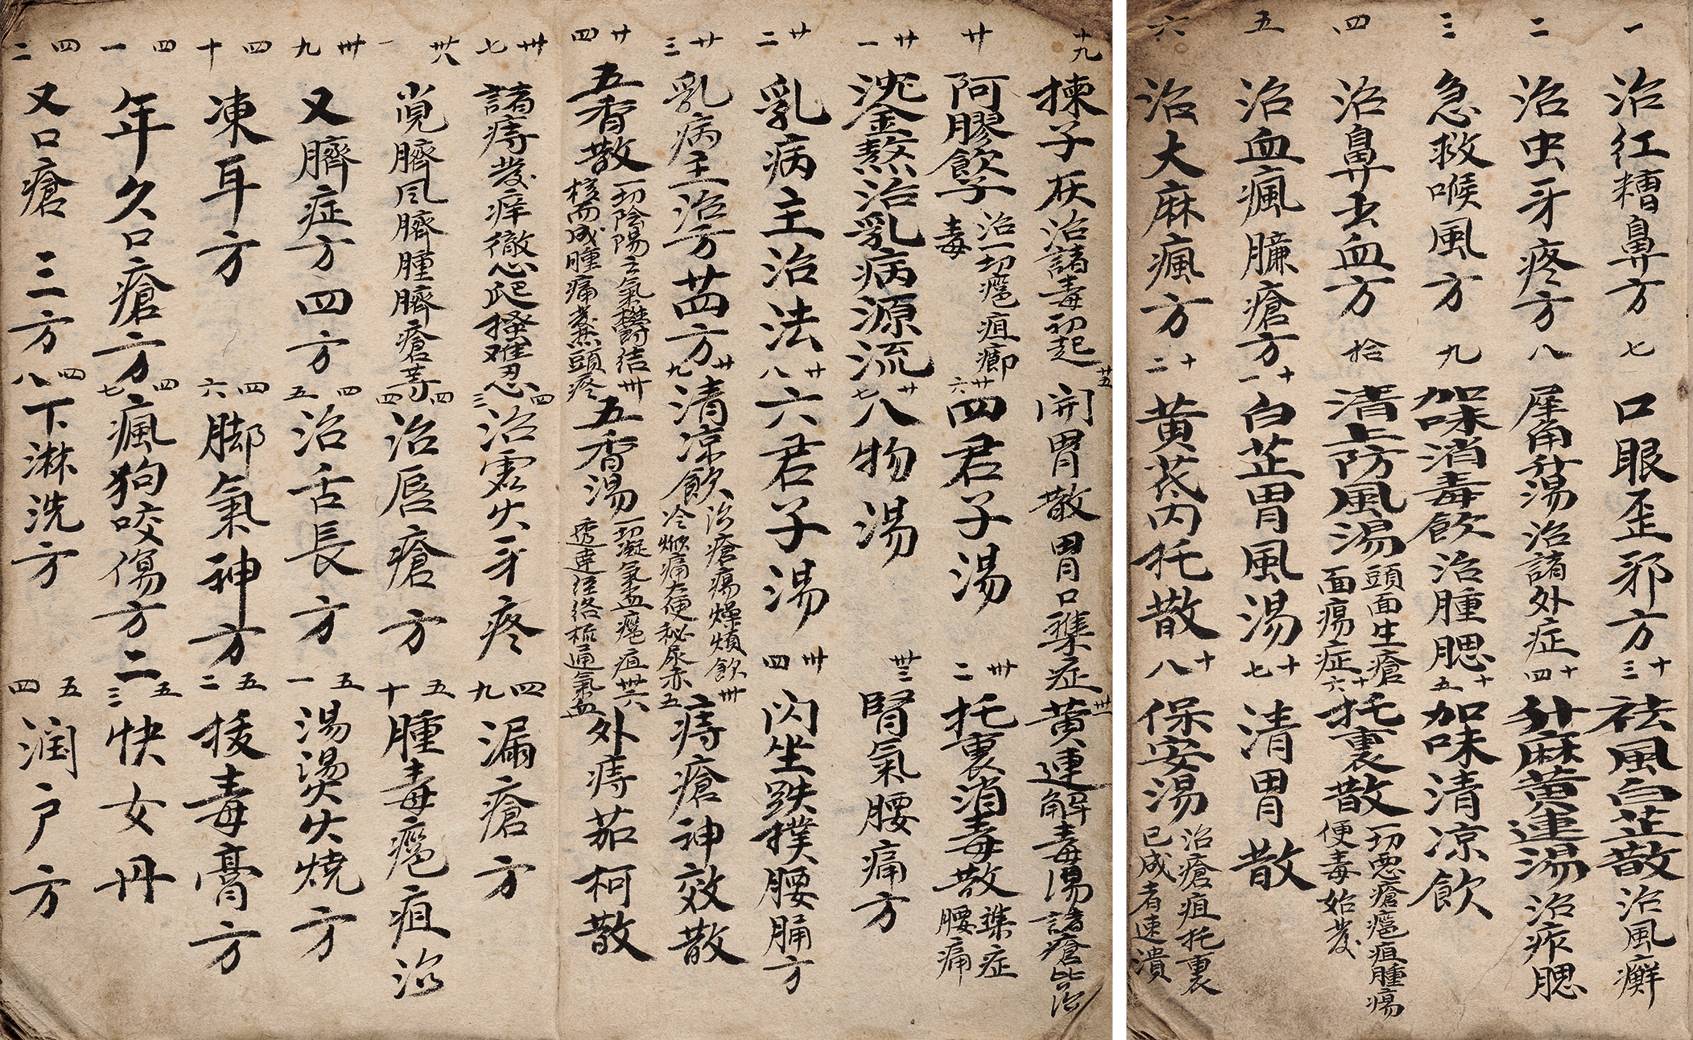 一 治紅糟鼻方 七 口眼歪邪方 十三 祛風白芷散 治風癬
二 治虫牙疼方 八 犀角升蕩湯 治諸外症 十四 升麻黃連湯 治痄腮
三 急救喉風方 九 加味消毒飲 治腫腮 十五 加味清凉飲
四 治鼻虫血方 拾 清上防風湯 頭面生瘡面瘍症 十六 托裏散 一切惡瘡瘟疽腫瘍便毒始發
五 治血瘋臁瘡方 十一 白芷胃風湯 十七 清胃散
六 治大麻瘋方 十二 黃芪內托散 十八 保安湯 治瘡疽托裏已成者速潰
十九 揀子灰 治諸毒初起 廿五 開胃散 胃口雜症 卅一 黃連解毒湯 諸瘡皆治
廿 阿膠飲子 治一切瘟疽癤毒 廿六 四君子湯 卅二 托裏消毒散 雜症腰痛
廿一 沈金熬治乳病源流 廿七 八物湯 卅三 腎氣腰痛方
廿二 乳病主治法 廿八 六君子湯 卅四 閃坐跌撲腰痛方
廿三 乳病主治方苗四方 廿九 清凉飲 治瘡瘍燥煩飲冷焮痛大便秘尿赤 卅五 痔瘡神效散
廿四 五香散 一切陰陽之氣欝結核而成腫痛煮熱頭疼 卅 五香湯 一切凝氣血瘟疽透達經絡梳通氣血 卅六 外痔茄柯散
卅七 諸痔發痒徹心爬搔难忍 四三 治雲火牙疼 四九 漏瘡方
卅八 一覓臍風臍腫臍瘡等 四四 治唇瘡方 五十 腫毒瘟疽治
卅九 又臍症方四方 四五 治舌長方 五一 湯燙火燒方
四十 凍耳方 四六 脚氣神方 五二 拔毒膏方
四一 年久口瘡方 四七 瘋狗咬傷方二 五三 快女丹
四二 又口瘡三方 四八 下淋洗方 五四 潤户方